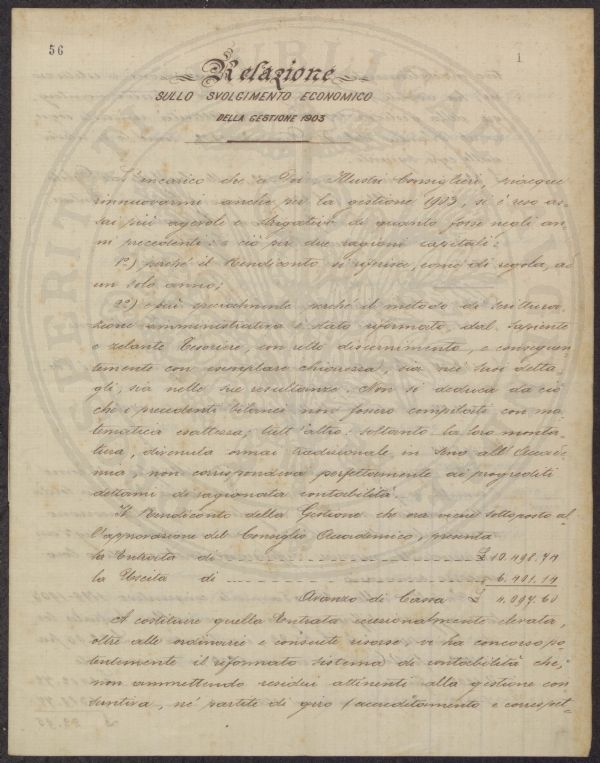 56
1
Relazione
SULLO SVOLGIMENTO ECONOMICO
DELLA GESTIONE 1903
L'incarico che a Voi, Illustri Consiglieri, piacque
rinnuovarmi anche per la gestione 1903, si è reso as-
sai più agevole e sbrigativo di quanto fosse negli an-
ni precedenti: e ciò per due ragioni capitali:
1º) perché il Rendiconto si riferisce, come di regola, ad
un solo anno;
2º) specialmente perché il metodo di scrittura-
zione amministrativa è stato riformato, dal sapiente
e zelante Tesoriere, con retto discernimento, e conseguen-
temente con esemplare chiarezza, sia nei suoi detta-
gli, sia nelle sue resultanze. Non si deduca da ciò
che i precedenti bilanci non fossero compilati con ma-
tematica esattezza, tutt'altro: soltanto la loro monta-
tura, divenuta ormai tradizionale in seno all'Accade-
mia, non corrispondeva perfettamente ai progrediti
dettami di ragionata contabilità.
Il Rendiconto della Gestione che ora viene sottoposto al-
l'approvazione del Consiglio Accademico, presenta
la Entrata di £ 10.498.74
la Uscita di " 6.401.14
Avanzo di Cassa £ 4.097.60
A costituire quella Entrata eccezionalmente elevata,
oltre alle ordinarie e consuete risorse, vi ha concorso po-
tentemente il riformato sistema di contabilità che,
non ammettendo residui attinenti alla gestione con-
suntiva, nè partite di giro (accreditamento e corrispet-